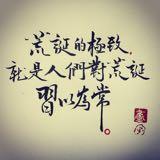 荒誕的極致，
就是人們對荒誕
習以為常。